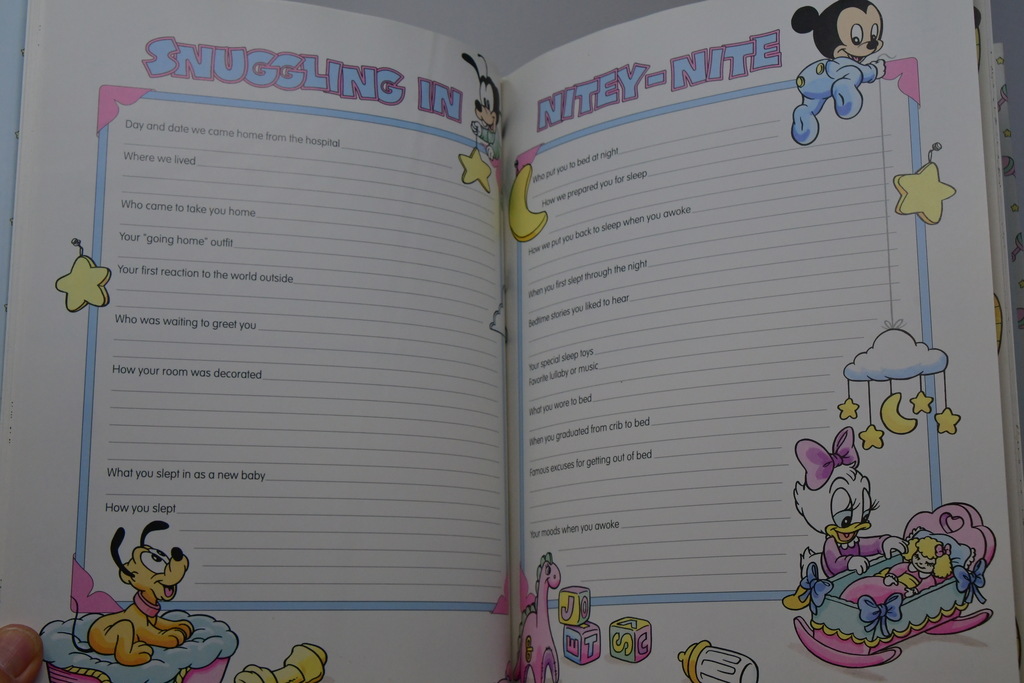 SNUGGLING IN
Day and date we came home from the hospital
Where we lived
Who came to take you home
Your "going home" outfit
Your first reaction to the world outside
Who was waiting to greet you
How your room was decorated
What you slept in as a new baby
How you slept
NITEY-NITE
Who put you to bed at night
How we prepared you for sleep
How we put you back to sleep when you awoke
When you first slept through the night
Bedtime stories you liked to hear
Your special sleep toys
Favorite lullaby or music
What you wore to bed
When you graduated from crib to bed
Famous excuses for getting out of bed
Your moods when you awoke